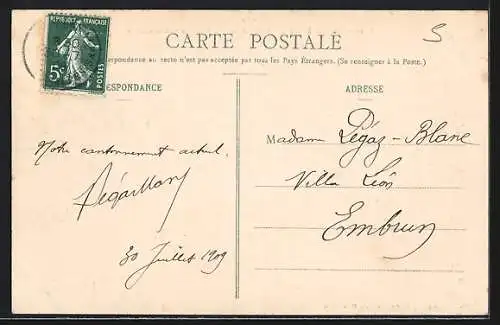 REPUBLIQUE FRANÇAISE
5c
POSTES
CARTE POSTALE
5
respondance au recto n'est pas acceptée par tous les Pays Étrangers. (Se renseigner à la Poste.)
ESPONDANCE
ADRESSE
Notre cantonnement actuel.
30 Juillet 1909
Madame Pégaz-Blanc
Villa Léon
Embrun